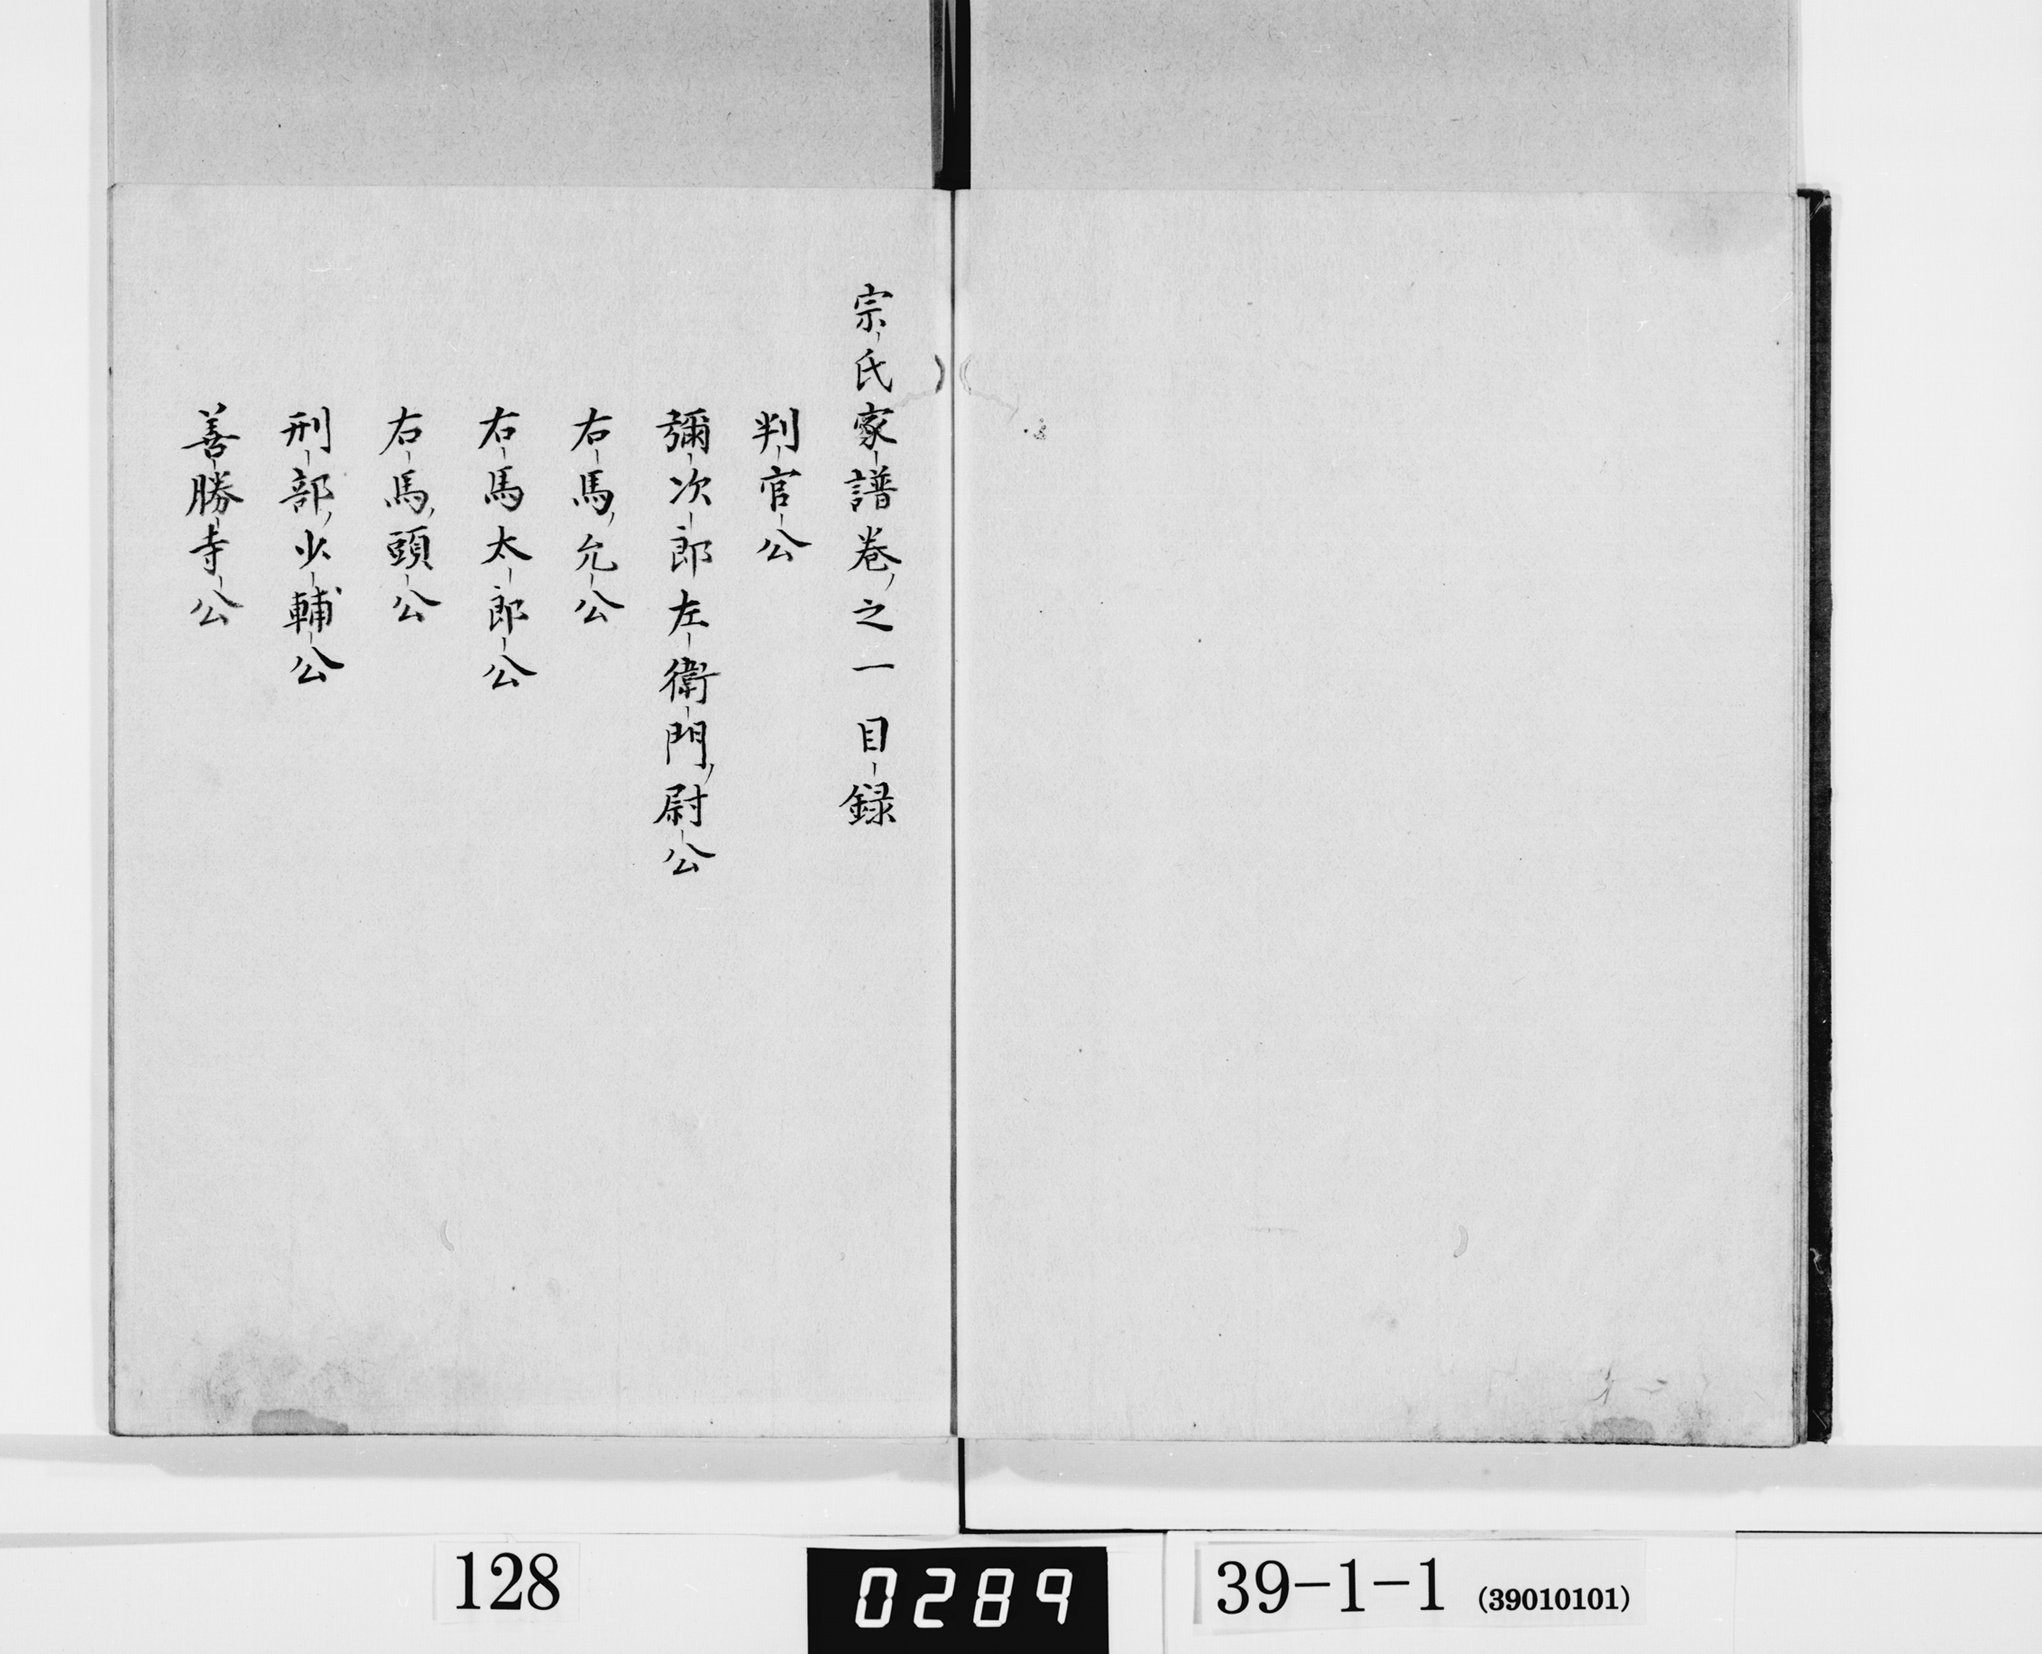 宗氏家譜卷之一目録
判官公
彌次郎左衛門尉公
右馬允公
右馬太郎公
右馬頭公
刑部少輔公
善勝寺公
128
0289
39-1-1 (39010101)